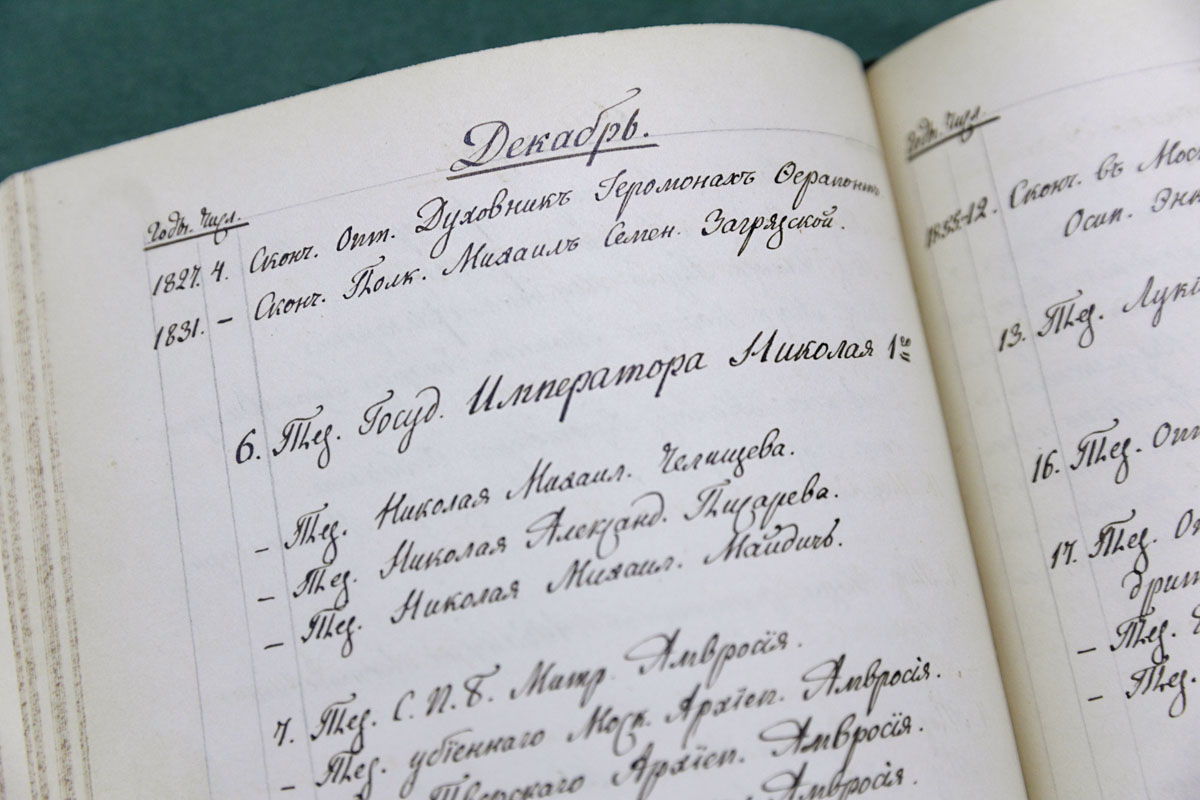 Декабрь.
Годы. Числ.
1827. 4. Сконч. Опт. Духовникъ Іеромонахъ Ѳерапонтъ
1831. – Сконч. Полк. Михаилъ Семен. Загрязской.
6. Тез. Госуд. Императора Николая 1го
– Тез. Николая Михаил. Челищева.
– Тез. Николая Александ. Писарева.
– Тез. Николая Михаил. Майдичъ.
7. Тез. С. П. Б. Митр. Амвросія.
– Тез. убіеннаго Моск. Архіеп. Амвросія.
Тверскаго Архіеп. Амвросія.
Амвросія.
Годы. Числ.
12. Сконч. въ
Осип.
13. Тез.
16. Тез.
17. Тез.
– Тез.
– Тез.